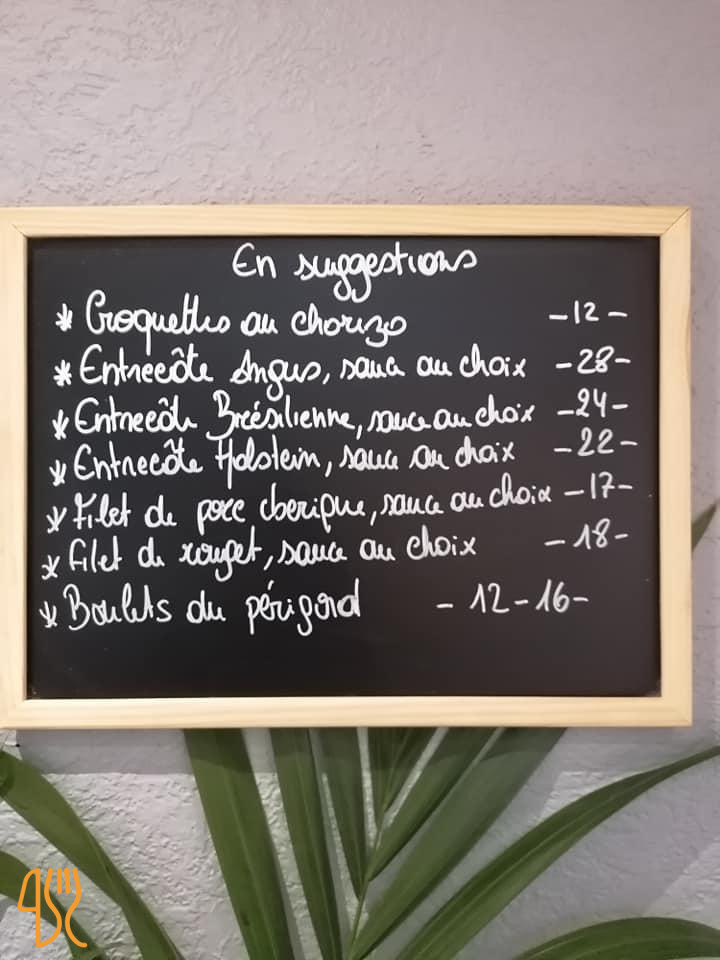 En suggestions
* Croquettes au chorizo -12-
* Entrecôte Angus, sauce au choix -28-
* Entrecôte Brésilienne, sauce au choix -24-
* Entrecôte Holstein, sauce au choix -22-
* Filet de porc iberique, sauce au choix -17-
* Filet de rouget, sauce au choix -18-
* Boulets du périgord - 12-16-